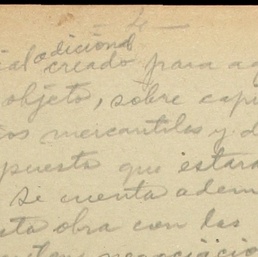 - 4 -
cial adicional creado para aq
objeto, sobre capi
ios mercantiles y d
puesta que estará
se cuenta adem
sta obra con las
negociacion